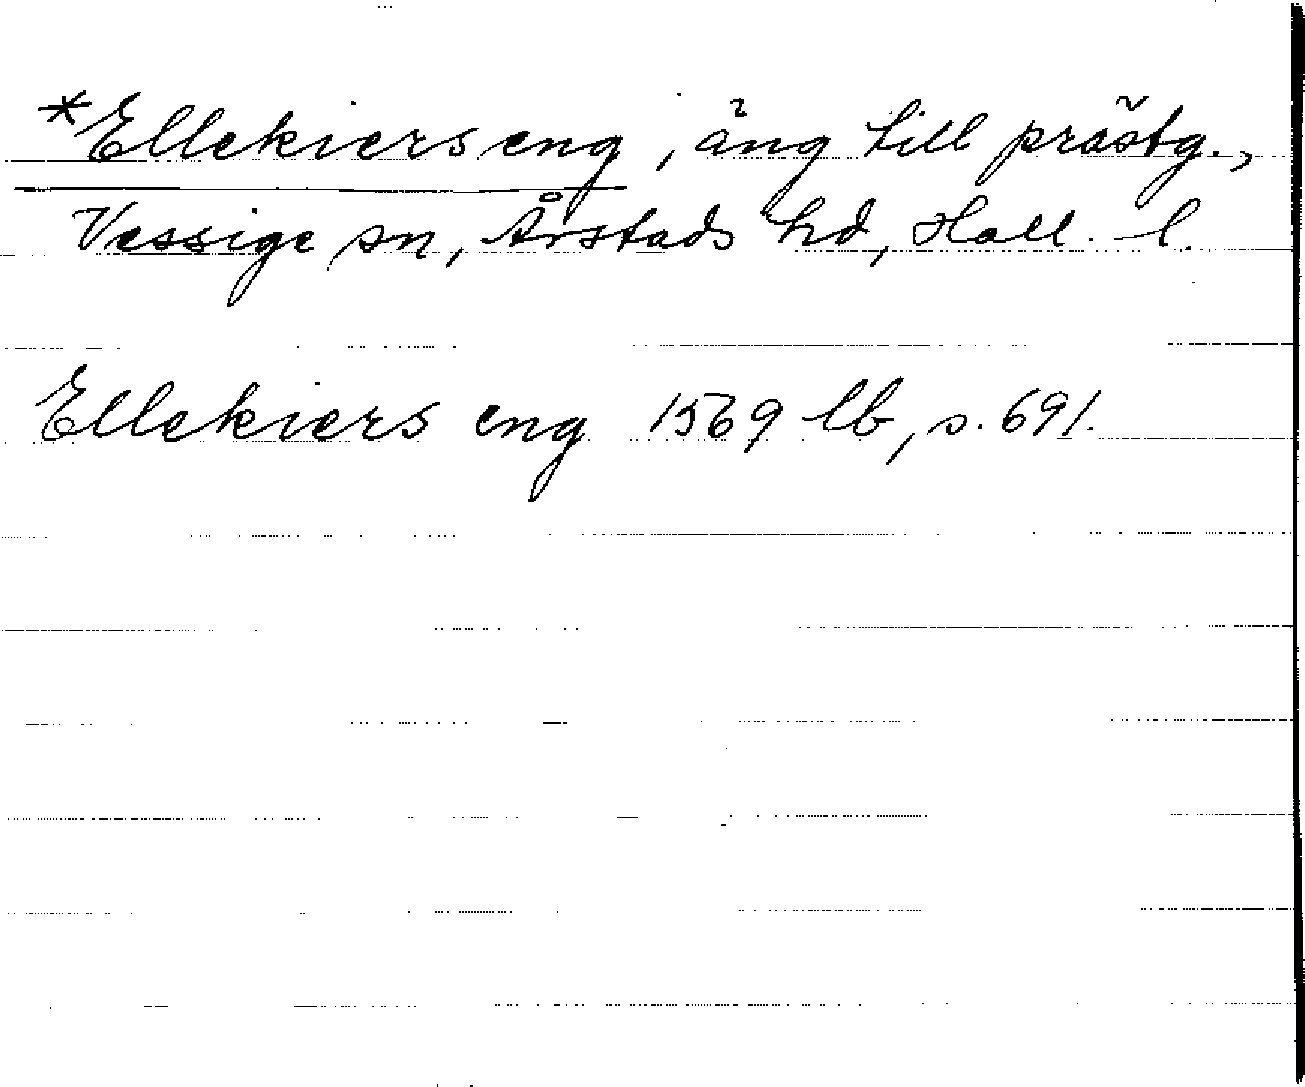 *Ellekiers eng, äng till prästg.,
Vessige sn, Årstads hd, Hall. l.
Ellekiers eng 1569 lb, s. 691.